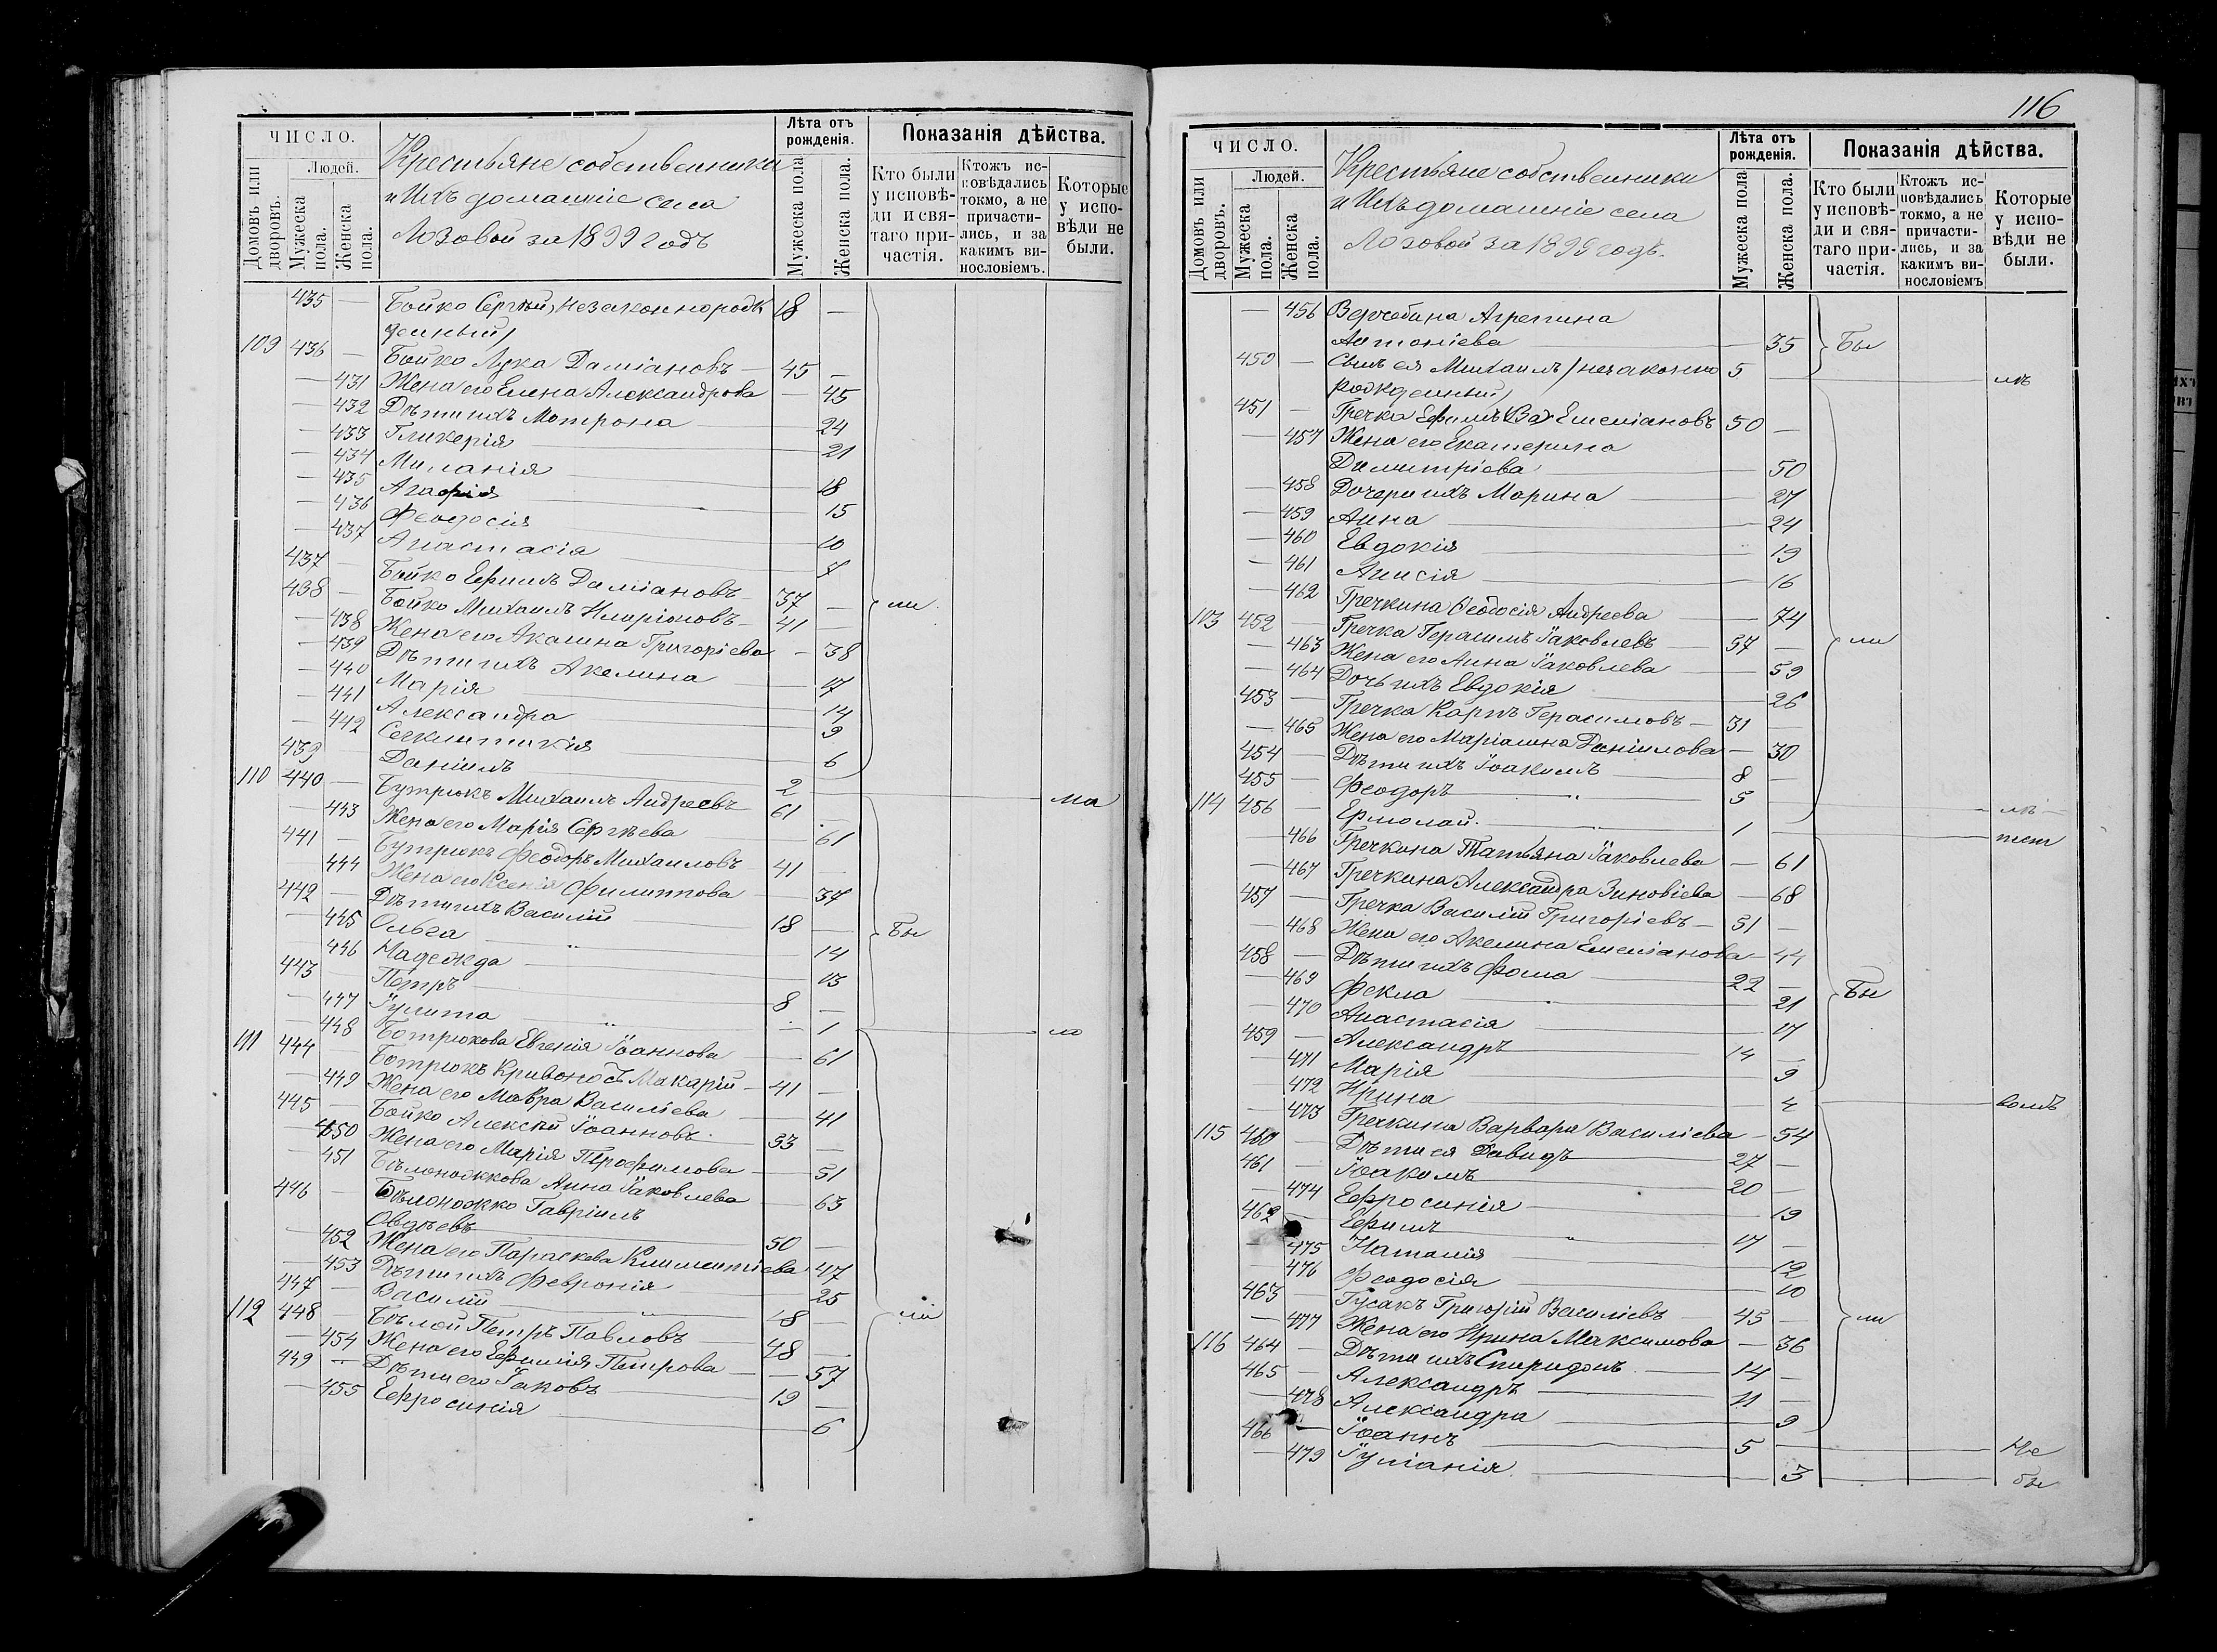 ЧИСЛО.
Домовъ или дворовъ.
Людей.
Мужеска пола.
Женска пола.
Крестьяне собственники
и Ихъ домашніе села
Лозовой за 1899 годъ
Лѣта отъ рожденія.
Мужеска пола
Женска пола.
Показанія дѣйства.
Кто были у исповѣди и святаго причастія.
Ктожъ исповѣдались токмо, а не причастились, и за какимъ винословіемъ.
Которые у исповѣди не были.
435 — Бойко Сергѣй, незаконнорож 18 —
денный)
109 436 — Бойко Лука Даміановъ — 45 —
— 431 Жена его Елена Александрова — 45
— 432 Дѣти ихъ Мотрона — 24
— 433 Гликерія — 21
— 434 Миланія — 18
— 435 Агафія — 15
— 436 Феодосія — 10
— 437 Анастасія — 7
437 — Бойко Ефимъ Даміановъ 37 — ли
438 — Бойко Михаилъ Иларіоновъ 41 —
— 438 Жена его Акилина Григоріева — 38
— 439 Дѣти ихъ Акелина — 17
— 440 Марія — 14
— 441 Александра — 9
— 442 — 6
439 Даніилъ 2 — ма
110 440 — Бутрюкъ Михаилъ Андреевъ 61 —
— 443 Жена его Марія Сергѣева — 61
441 — Бутрюкъ Феодоръ Михаиловъ 41 —
— 444 Жена его Ксенія Филиппова — 37
442 — Дѣти ихъ Василій 18 — Бы
— 445 Ольга — 14
— 446 Надежда — 13
443 — Петръ 8 —
— 447 Іулита — 1 ло
— 448 Ботрюкова Евгенія Іоаннова — 61
111 444 — Ботрюкъ Кривоносъ Макарій 41 —
— 449 Жена его Мавра Василіева — 41
445 — Бойко Алексѣй Іоанновъ 53 —
— 450 Жена его Марія Трофимова — 51
— 451 Бѣлоножкова Анна Іаковлева — 63
446 — Бѣлоножко Гавріилъ
Овдѣевъ 50 —
— 452 Жена его Параскева Климентіева 47
— 453 Дѣти ихъ Февронія — 25
447 — Василій 18 — ли
112 448 — Бѣлой Петръ Павловъ 48 —
— 454 Жена его Ефимія Петрова — 57
449 — Дѣти его Іаковъ 19 —
— 455 Ефросинія — 6
116
ЧИСЛО.
Домовъ или дворовъ.
Людей.
Мужеска пола.
Женска пола.
Крестьяне собственники
и Ихъ домашніе села
Лозовой за 1899 годъ.
Лѣта отъ рожденія.
Мужеска пола
Женска пола.
Показанія дѣйства.
Кто были у исповѣди и святаго причастія.
Ктожъ исповѣдались токмо, а не причастились, и за какимъ винословіемъ
Которые у исповѣди не были.
— 456 Агрепина
Антоніева — 35 Бы
450 — Сынъ ея Михаилъ (незаконно 5 — лъ
рожденный)
451 — Гречка Ефимъ (Ва) Емеліановъ 50 —
— 457 Жена его Екатерина
Димитріева — 50
— 458 Дочери ихъ Марина — 27
— 459 Анна — 24
— 460 Евдокія — 19
— 461 Анисія — 16
— 462 Гречкина Феодосія Андреева — 74
103 452 — Гречка Герасимъ Іаковлевъ 57 — ли
— 463 Жена его Анна Іаковлева — 59
— 464 Дочь ихъ Евдокія — 26
453 — Гречка Карпъ Герасимовъ — 31 —
— 465 Жена его Маріамна Даніилова — 30
454 — Дѣти ихъ Іоакимъ 8 —
455 — Феодоръ 5 —
114 456 — Ермолай 1 —
— 466 Гречкина Татьяна Іаковлева — 61
— 467 Гречкина Александра Зиновіева — 68
457 — Гречка Василій Григоріевъ — 51 —
— 468 Жена его Акелина Емеліанова — 44
458 — Дѣти ихъ Фома 22 — Бы
— 469 Фекла — 21
— 470 Анастасія — 17
459 — Александръ 14 —
— 471 Марія — 9
— 472 Ирина — 4
— 473 Гречкина Варвара Василіева — 54
115 460 — Дѣти ея Давидъ 27 —
461 — Іоакимъ 20 —
— 474 Ефросинія — 19
462 — Ефимъ 17 —
— 475 Наталія — 12
— 476 Феодосія — 10
463 — Гусакъ Григорій Василіевъ — 45 — ли
— 477 Жена его Ирина Максимова — 36
116 464 — Дѣти ихъ Спиридонъ 14 —
465 — Александръ 11 —
— 478 Александра — 9
466 — Іоаннъ 5 — Не
— 479 Іуліанія — 3 бы